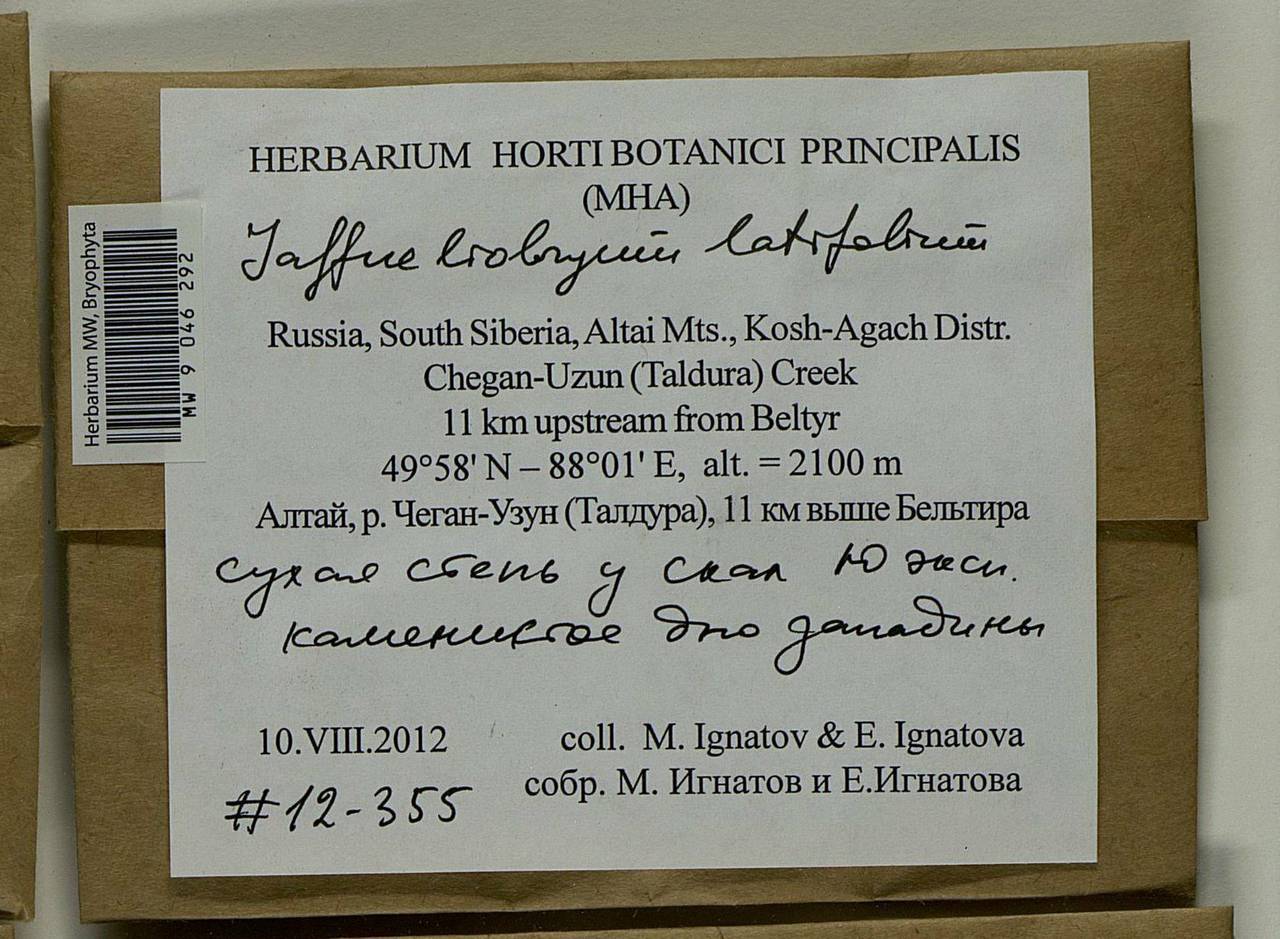 HERBARIUM HORTI BOTANICI PRINCIPALIS
(MHA)
Jaffueliobryum latifolium
Russia, South Siberia, Altai Mts., Kosh-Agach Distr.
Chegan-Uzun (Taldura) Creek
11 km upstream from Beltyr
49°58' N – 88°01' E, alt. = 2100 m
Алтай, р. Чеган-Узун (Талдура), 11 км выше Бельтира
сухая степь у скал Ю эксп.
каменистое дно западины
10.VIII.2012
coll. M. Ignatov & E. Ignatova
собр. М. Игнатов и Е.Игнатова
#12-355
Herbarium MW, Bryophyta
MW 9 046 292